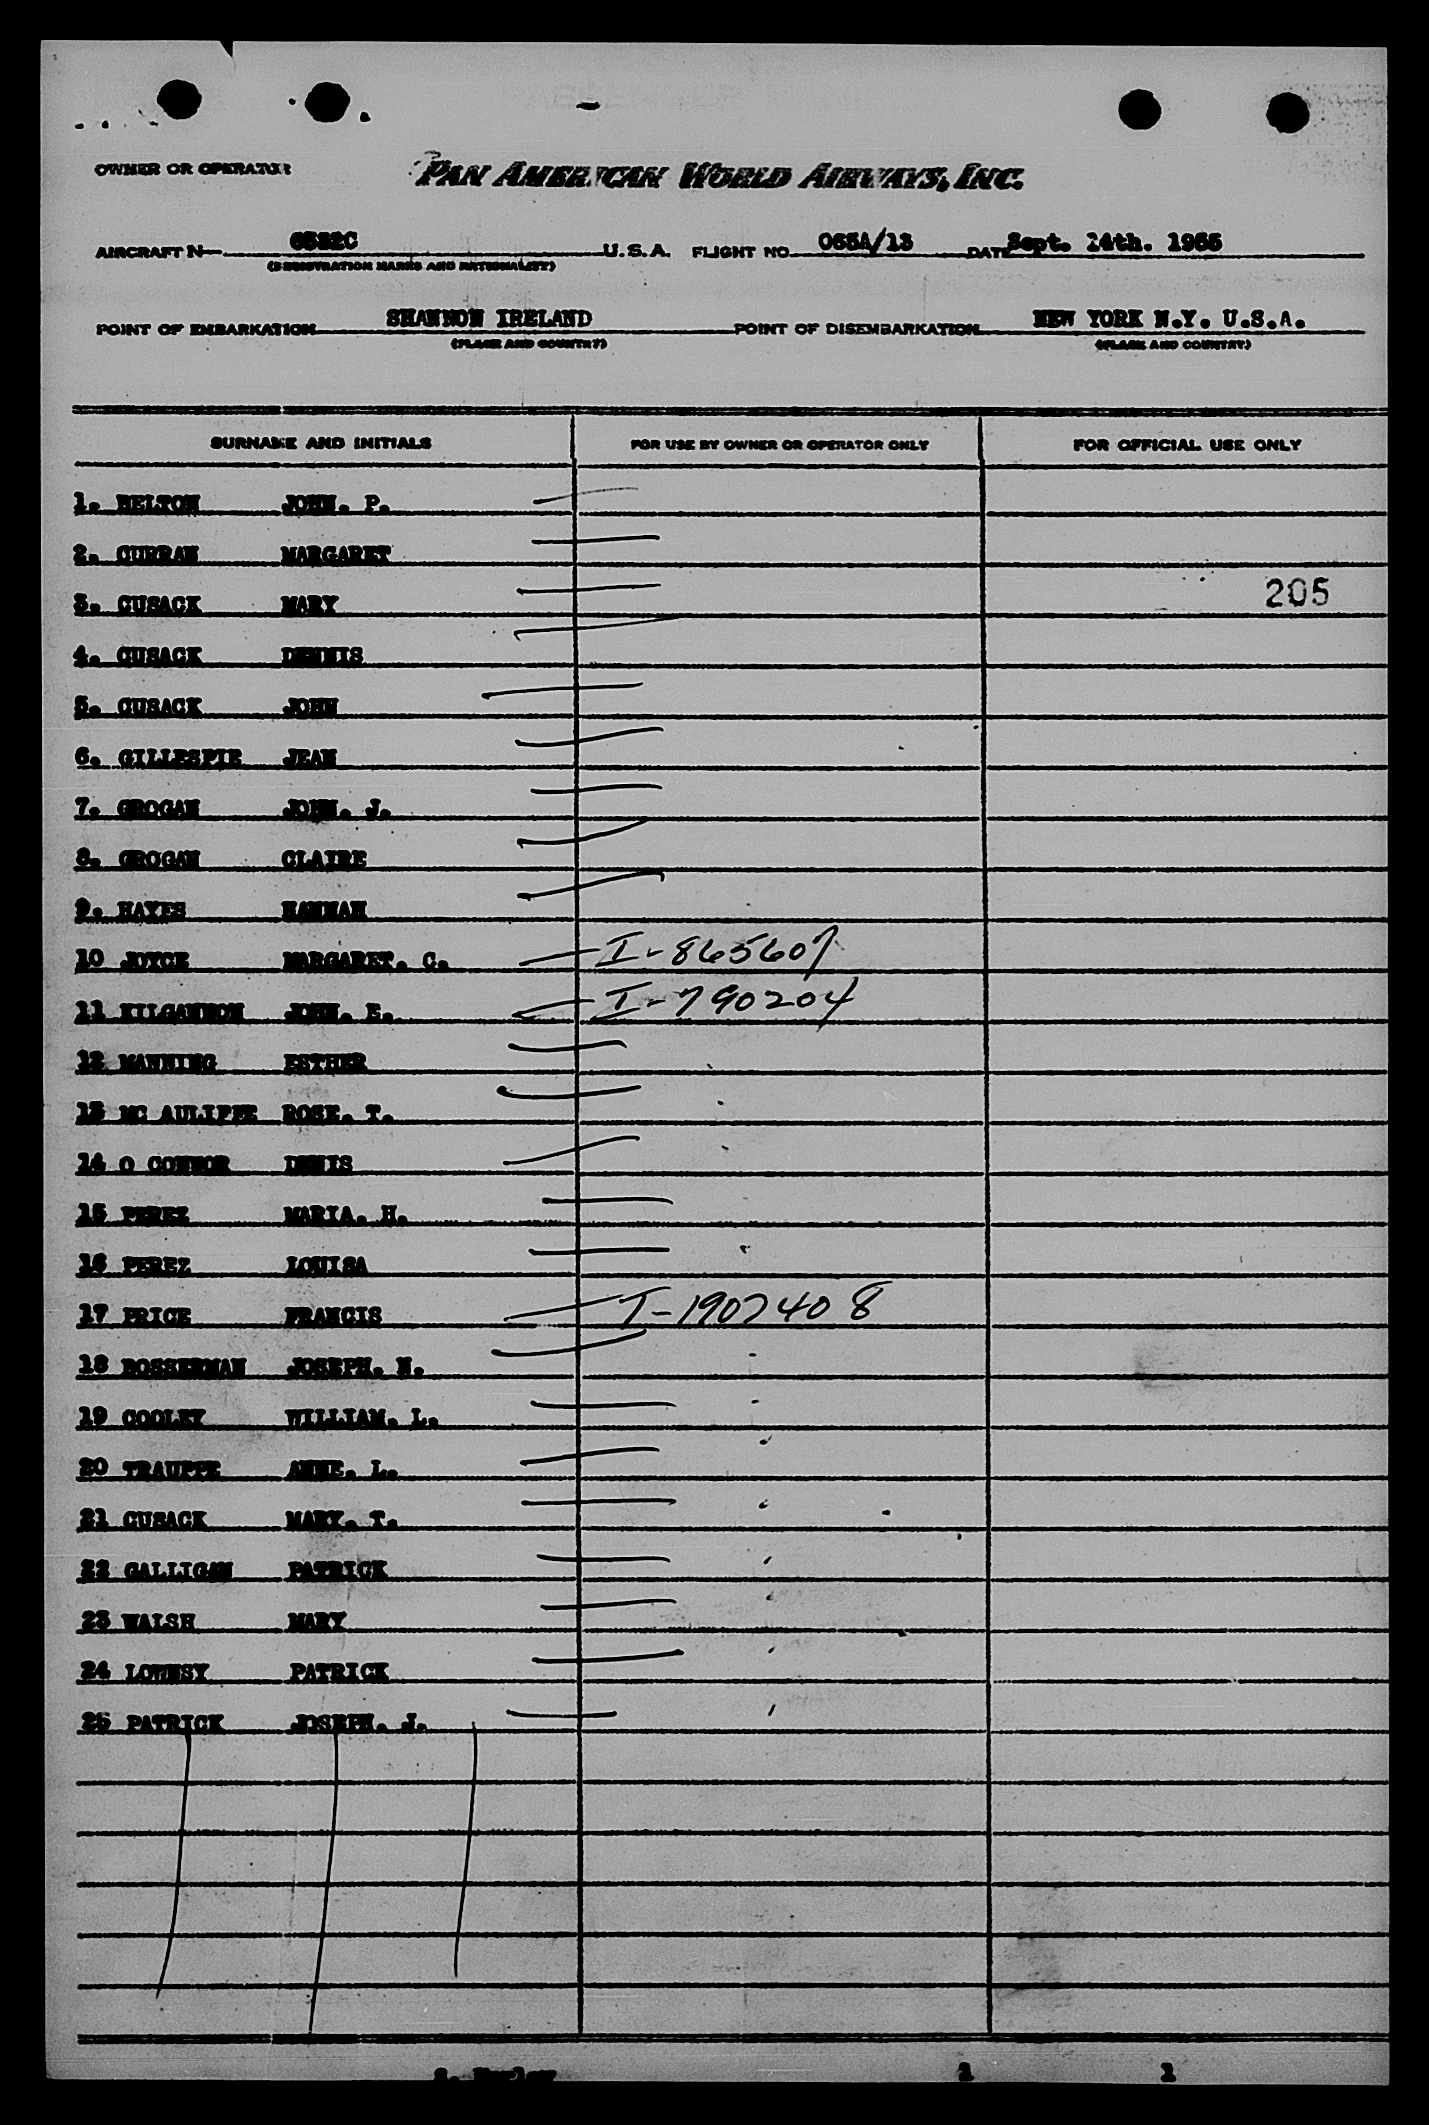 OWNER OR OPERATOR PAN AMERICAN WORLD AIRWAYS, INC.
AIRCRAFT N— 6532C U.S.A. FLIGHT NO. 065A/13 DATE Sept. 14th. 1955
(REGISTRATION MARKS AND NATIONALITY)
POINT OF EMBARKATION SHANNON IRELAND POINT OF DISEMBARKATION NEW YORK N.Y. U.S.A.
(PLACE AND COUNTRY) (PLACE AND COUNTRY)
SURNAME AND INITIALS FOR USE BY OWNER OR OPERATOR ONLY FOR OFFICIAL USE ONLY
1. BELTON JOHN. P.
2. CURRAN MARGARET
3. CUSACK MARY 205
4. CUSACK DENNIS
5. CUSACK JOHN
6. GILLESPIE JEAN
7. GROGAN JOHN. J.
8. GROGAN CLAIRE
9. HAYES HANNAH
10 JOYCE MARGARET. C. I-865607
11 KILGANNON JOHN. E. I-790204
12 MANNING ESTHER
13 MC AULIFFE ROSE. T.
14 O CONNOR DENIS
15 PEREZ MARIA. H.
16 PEREZ LOUISA
17 PRICE FRANCIS I-1907408
18 BOSSERMAN JOSEPH. N.
19 COOLEY WILLIAM. L.
20 TRAUPPE ANNE. L.
21 CUSACK MARY. T.
22 GALLIGAN PATRICK
23 WALSH MARY
24 PATRICK
25 PATRICK JOSEPH. J.
1 1